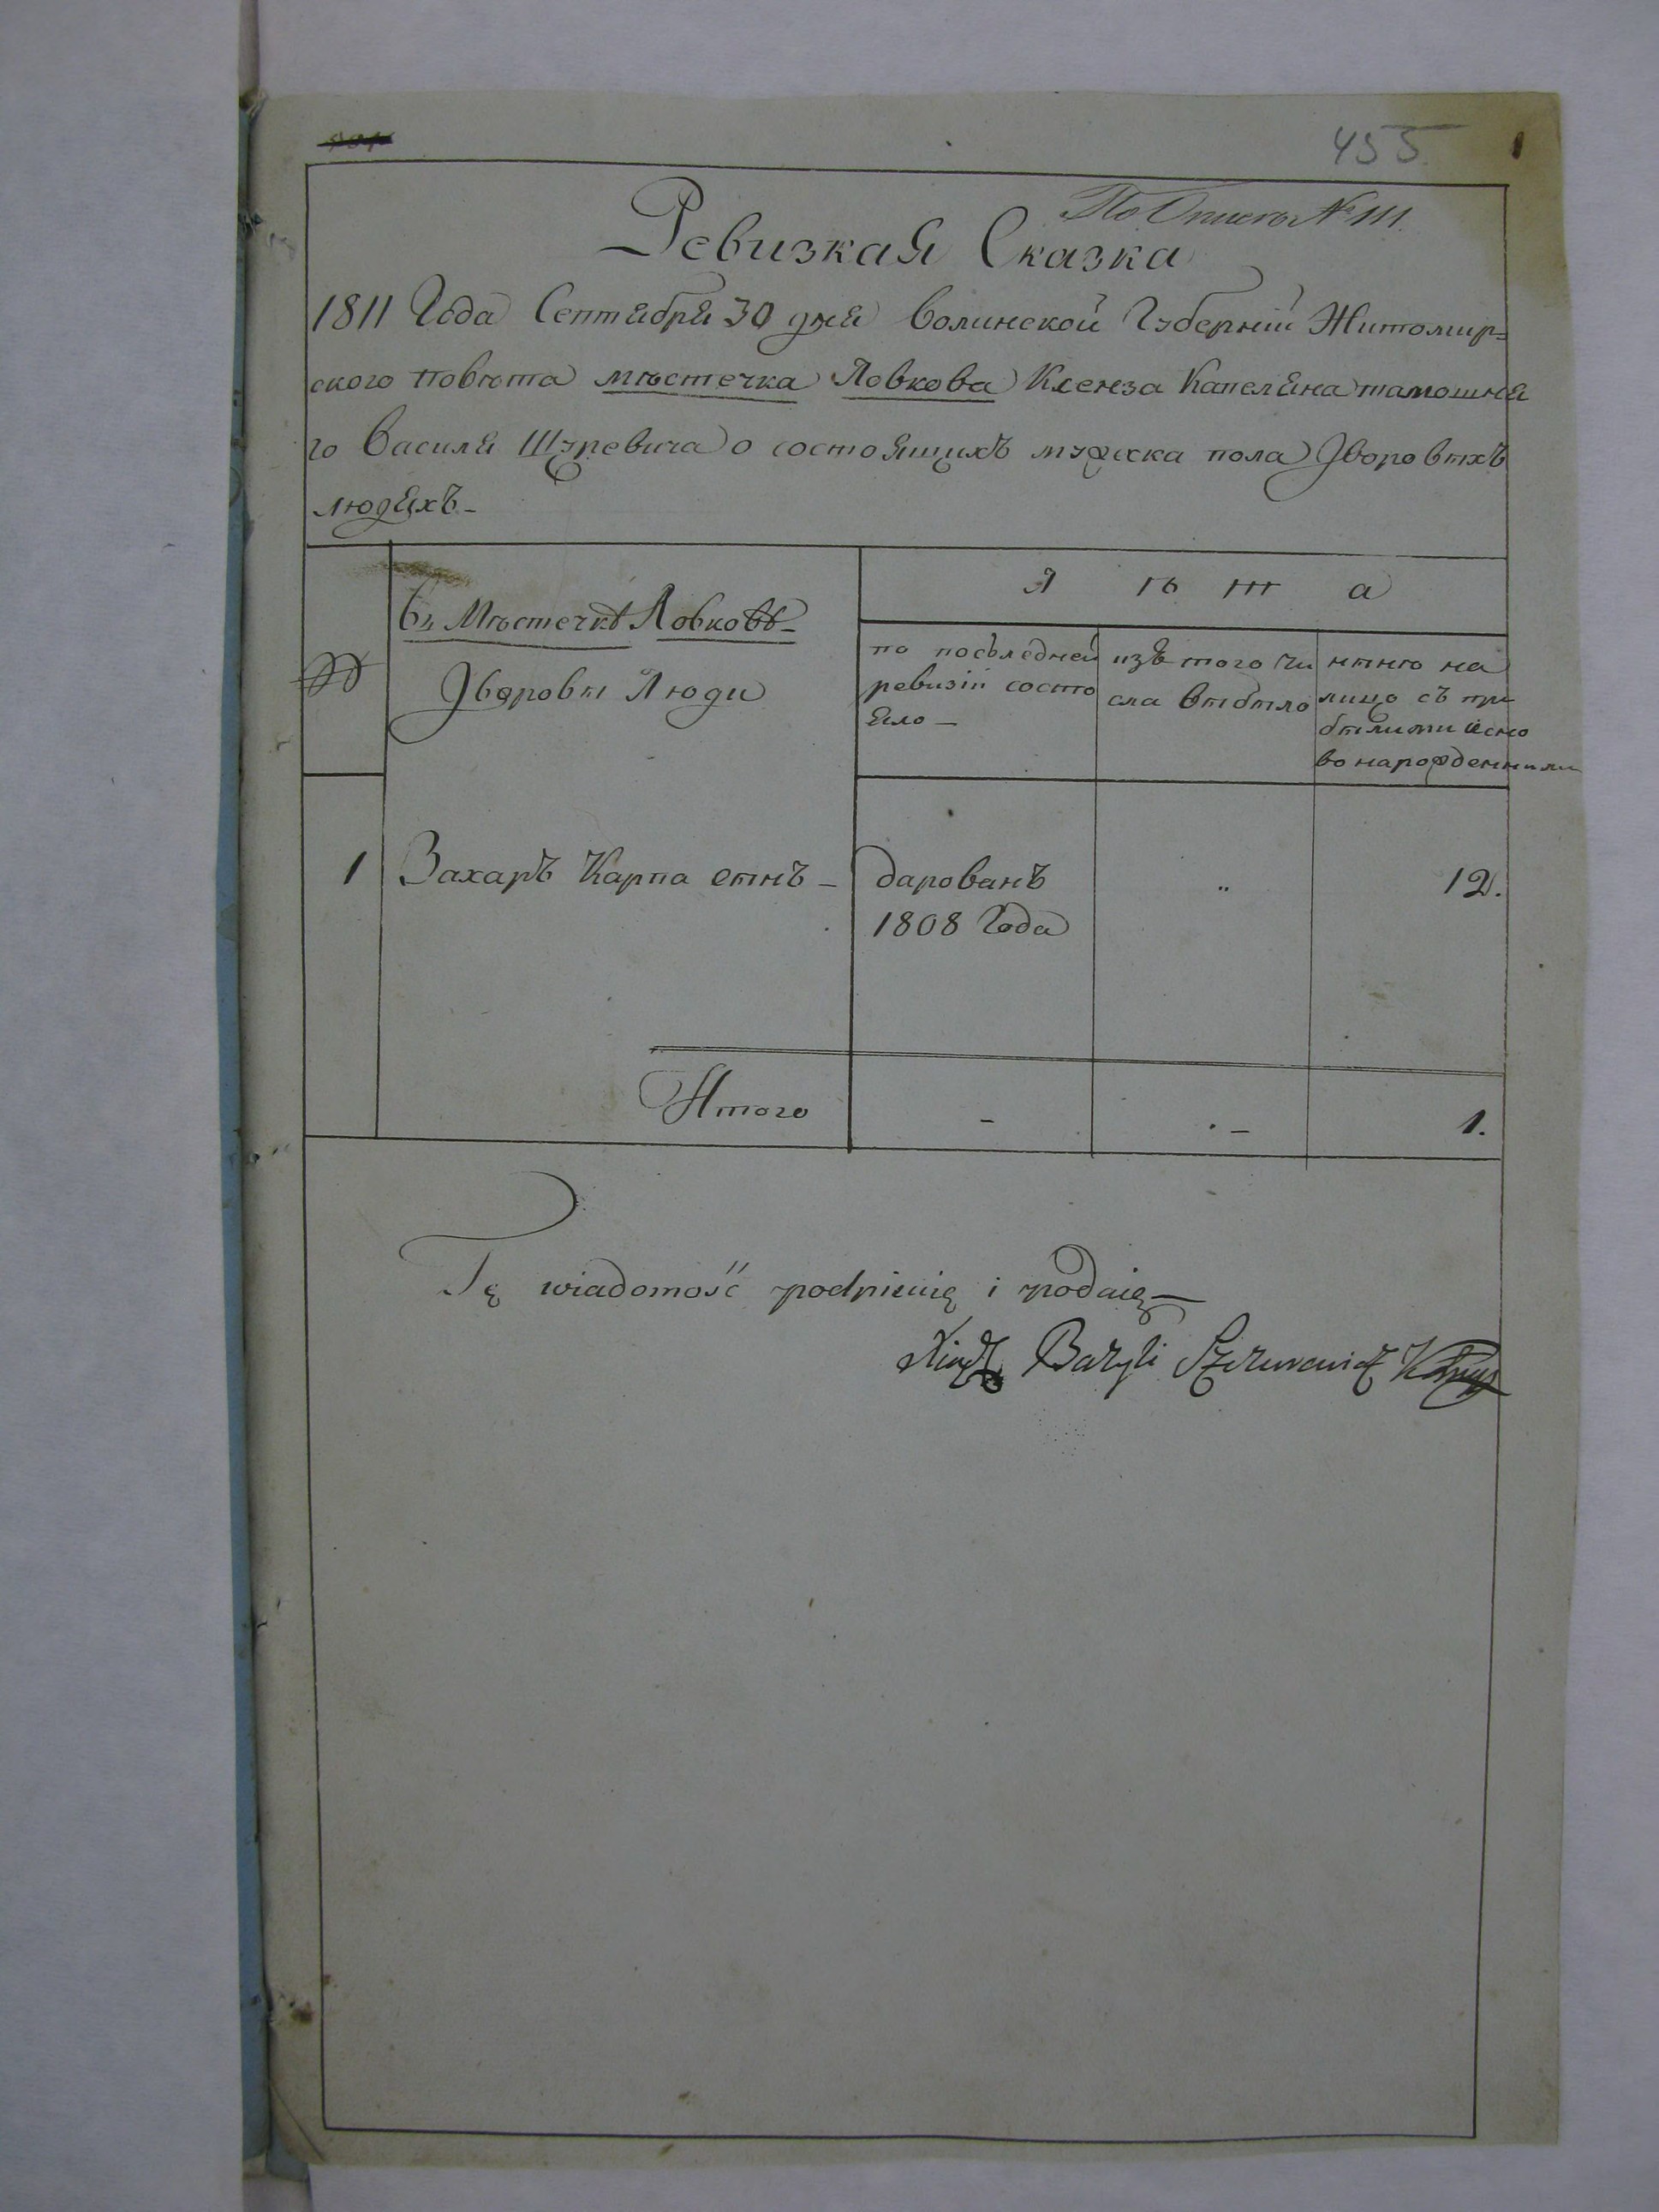 455.
По Описи № 111.
Ревизкая Сказка
1811 Года Сентября 30 дня Волинской Губерніи Житомир=
ского повѣта мѣстечка Ловкова Ксенза Капеляна тамошня
го Василя Щуревича о состоящихъ мужска пола Дворовыхъ
людяхъ_
Въ Мѣстечкѣ Ловковѣ_
Дворовы Люди
Л ѣ т а
по посьледней
ревизіи состо
яло _
изъ того чи
сла выбыло
нынѣ на
лицо съ при
былыми и сно
во нарожденними
1 Захаръ Карпа сынъ _ дарованъ " 12.
1808 Года
Итого - - 1.
Tę wiadomość podpisuię i podaię
Xiądz Bazyli Szczurewicz